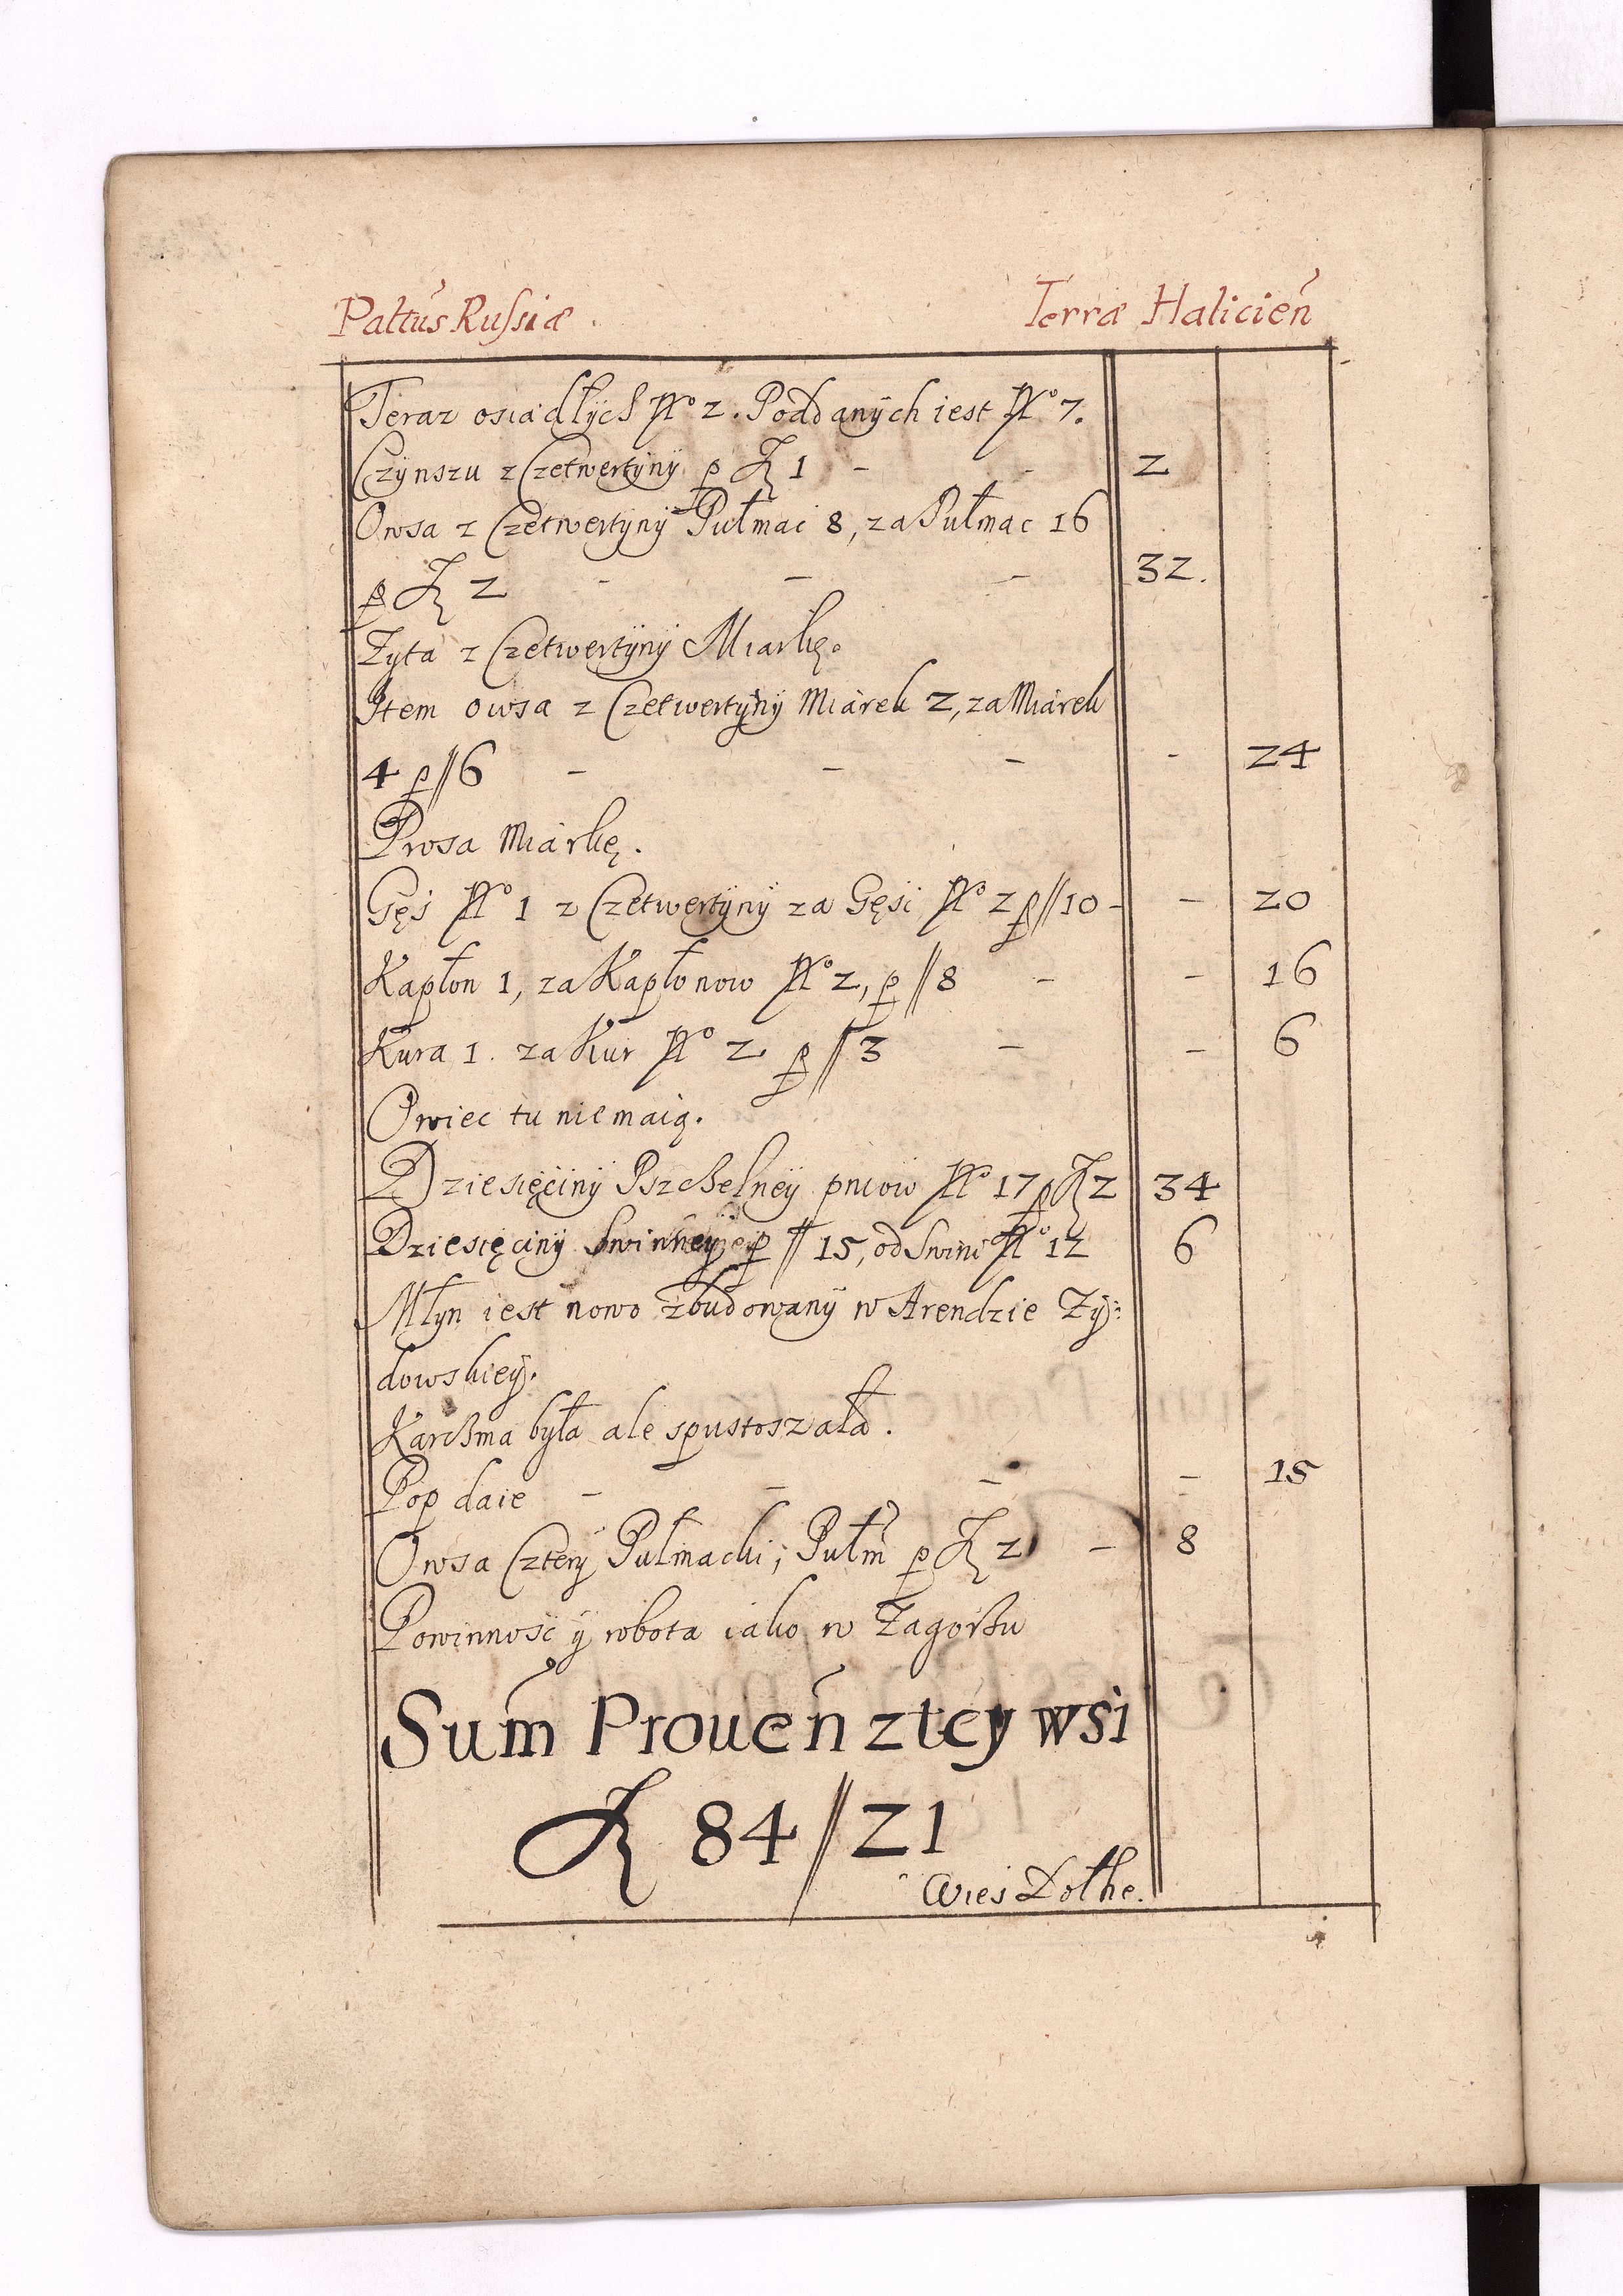 Paltús Russiæ Terræ Halicień
Teraz osiadłÿch No 2. Poddanÿch iest No 7.
Czÿnszu z Czetwertÿnÿ p Zł 1 - - 2
Owsa z Czetwertÿnÿ Pułmac 8, za Pułmac 16
p Zł 2 - - - 32.
Zyta z Czetwertÿnÿ Miarkę.
Item owsa z Czetwertÿnÿ Miarek 2, za Miarek
4 p // 6 - - - - 24
Prosa Miarkę.
Gęś No 1 z Czetwertÿnÿ za Gęsi No 2 p // 10 - - 20
Kapłon 1, za Kapłonow No 2, p // 8 - - 16
Kura 1. za Kur No 2 p // 3 - - 6
Owiec tu nie maią.
Dziesięcinÿ Pszchelneÿ pniow No 17 p Zł 2 34
Dziesięcinÿ Swinneÿ p // 15, od Swini No 12 6
Młyn iest nowo zbudowanÿ w Arendzie Zÿ:
dowskieÿ.
Karcßma była ale spustoszała.
Pop daie - - - - 15
Owsa Czterÿ Pułmacki; Pułm̃ p Zł 2 - 8
Powinność ÿ robota iako w Zagorßu
Sum̃ Proueń z tey wsi
Zł 84 // 21
Wieś Dołhe.